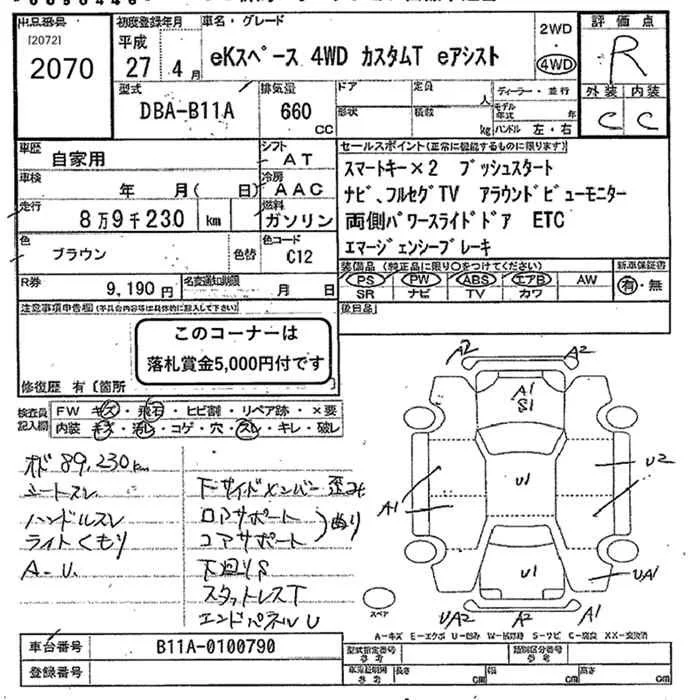 出品番号 初度登録年月 車名・グレード 評価点
[2072] 平成 2WD
2070 27年 4月 eKスペース 4WD カスタムT eアシスト 4WD R
型式 排気量 ドア 定員 人 ディーラー・並行 外装 内装
DBA-B11A 660 CC 形状 積数 kg モデル年式 年 C C
ハンドル 左・右
車歴 自家用 シフト AT セールスポイント(正常に機能するものに限ります)
車検 年 月( 日) 冷房 AAC スマートキー×2 プッシュスタート
走行 8万9千230 km 燃料 ガソリン ナビ、フルセグTV アラウンドビューモニター
両側パワースライドドア ETC
色 ブラウン 色替 色コード C12 エマージェンシーブレーキ
R券 9,190円 名変通知期限 月 日 装備品(純正品に限り○をつけてください) 新車保証書
PS PW ABS エアB AW 有・無
SR ナビ TV カワ
注意事項申告欄(不具合内容等は具体的に記入して下さい) 後日品
このコーナーは
落札賞金5,000円付です
修復歴 有〔箇所
検査員記入欄 FW キズ・飛石・ヒビ割・リペア跡・×要
内装 キズ・汚レ・コゲ・穴・スレ・キレ・破レ
オド 89,230km
シートスレ 下サイドメンバー歪み
ハンドルスレ ロアサポート
ライトくもり コアサポート
A-U. 下廻りS
スタットレスT
エンドパネルU
A2 A2
A1
S1
U1 U2
A1
U1 UA1
スペア UA2 A2 A1
A-キズ E-エクボ U-凹み S-サビ C-腐食 XX-交換済
車台番号 B11A-0100790 型式指定番号 参考 類別区分番号 参考
登録番号 参考 長さ cm 幅 cm 高さ cm